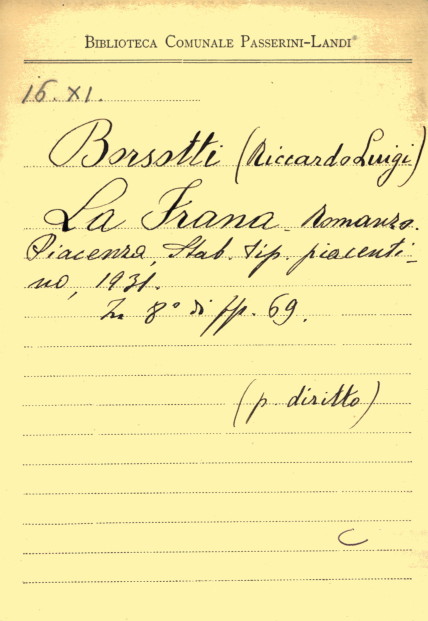 BIBLIOTECA COMUNALE PASSERINI-LANDI
16. XI.
Borsotti (Riccardo Luigi)
La Frana. Romanzo.
Piacenza, Stab. tip. piacenti-
no, 1931.
In 8° di pp. 69.
(p. diritto)
C